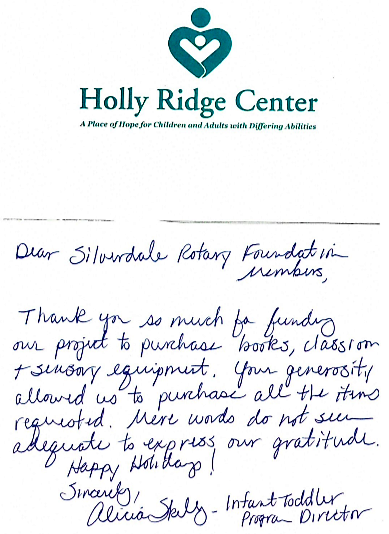 Holly Ridge Center
A Place of Hope for Children and Adults with Differing Abilities
Dear Silverdale Rotary Foundation
Members,
Thank you so much for funding
our project to purchase books, classroom
+ sensory equipment. Your generosity
allowed us to purchase all the items
requested. Mere words do not seem
adequate to express our gratitude.
Happy Holidays!
Sincerely,
Alicia - Infant Toddler
Program Director